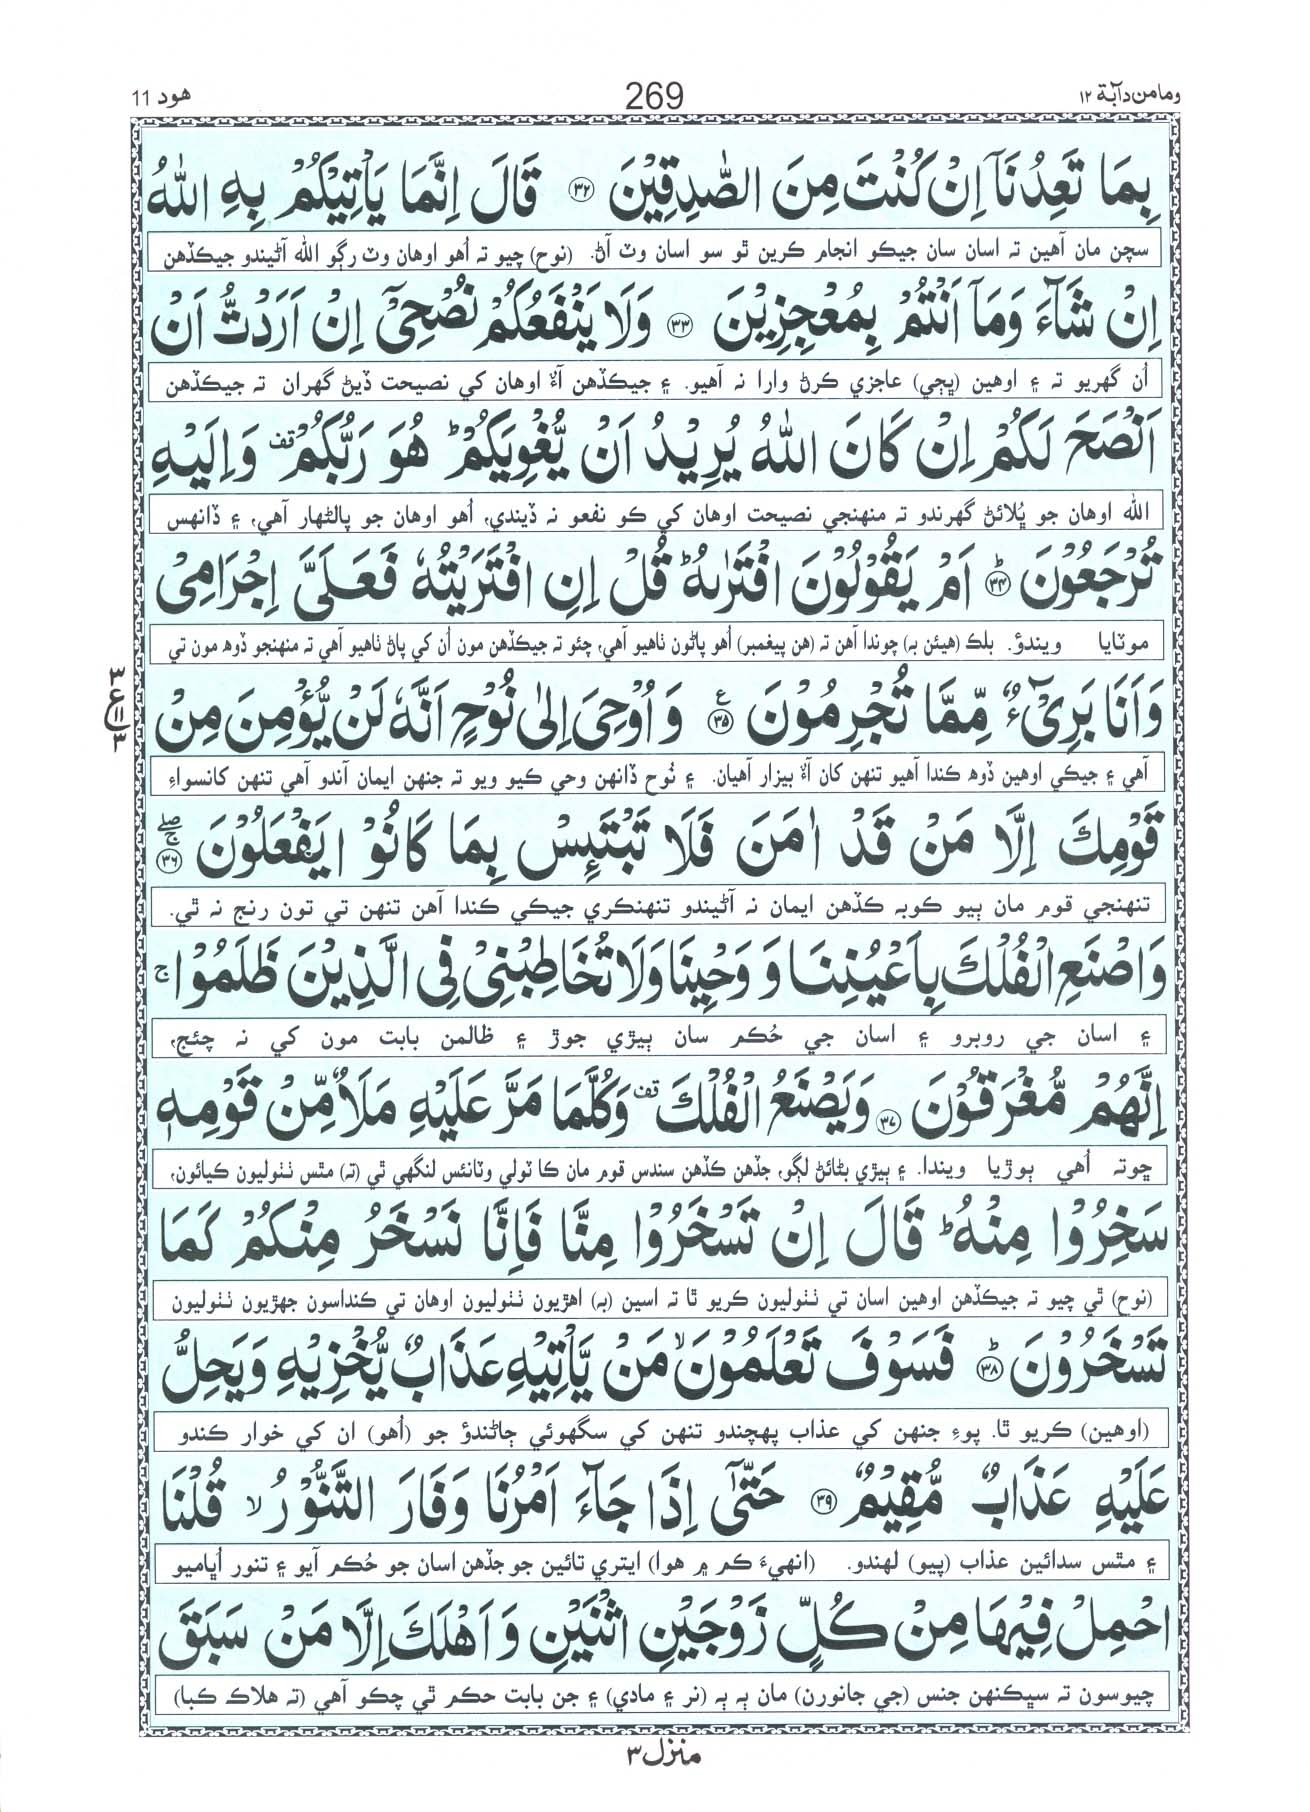 هود 11
269
ومامن دآبة ١٢
بِمَا تَعِدُنَاۤ اِنْ كُنْتَ مِنَ الصّٰدِقِيْنَ ٣٢ قَالَ اِنَّمَا يَاْتِيْكُمْ بِهِ اللّٰهُ
سچن مان آهين ته اسان سان جيڪو انجام ڪرين ٿو سو اسان وٽ آڻ. (نوح) چيو ته اُهو اوهان وٽ رڳو الله آڻيندو جيڪڏهن
اِنْ شَآءَ وَمَاۤ اَنْتُمْ بِمُعْجِزِيْنَ ٣٣ وَلَا يَنْفَعُكُمْ نُصْحِيْۤ اِنْ اَرَدْتُّ اَنْ
اُن گهريو ته ۽ اوهين (ڀڄي) عاجزي ڪرڻ وارا نه آهيو. ۽ جيڪڏهن آءٌ اوهان کي نصيحت ڏيڻ گهران ته جيڪڏهن
اَنْصَحَ لَكُمْ اِنْ كَانَ اللّٰهُ يُرِيْدُ اَنْ يُّغْوِيَكُمْ ؕ هُوَ رَبُّكُمْ قف وَاِلَيْهِ
الله اوهان جو ڀُلائڻ گهرندو ته منهنجي نصيحت اوهان کي ڪو نفعو نه ڏيندي، اُهو اوهان جو پالڻهار آهي، ۽ ڏانهس
تُرْجَعُوْنَ ؕ ٣٤ اَمْ يَقُوْلُوْنَ افْتَرٰىهُ ؕ قُلْ اِنِ افْتَرَيْتُهٗ فَعَلَيَّ اِجْرَامِيْ
موٽايا ويندؤ. بلڪ (هيئن به) چوندا آهن ته (هن پيغمبر) اُهو پاڻون ٺاهيو آهي، چئو ته جيڪڏهن مون اُن کي پاڻ ٺاهيو آهي ته منهنجو ڏوهه مون تي
وَاَنَا بَرِيْۤءٌ مِّمَّا تُجْرِمُوْنَ ع ٣٥ وَاُوْحِيَ اِلٰى نُوْحٍ اَنَّهٗ لَنْ يُّؤْمِنَ مِنْ
٣ ع ١١ ٣
آهي ۽ جيڪي اوهين ڏوهه ڪندا آهيو تنهن کان آءٌ بيزار آهيان. ۽ نُوح ڏانهن وحي ڪيو ويو ته جنهن ايمان آندو آهي تنهن کانسواءِ
قَوْمِكَ اِلَّا مَنْ قَدْ اٰمَنَ فَلَا تَبْتَئِسْ بِمَا كَانُوْا يَفْعَلُوْنَ صلے ج ٣٦
تنهنجي قوم مان ٻيو ڪوبه ڪڏهن ايمان نه آڻيندو تنهنڪري جيڪي ڪندا آهن تنهن تي تون رنج نه ٿي.
وَاصْنَعِ الْفُلْكَ بِاَعْيُنِنَا وَوَحْيِنَا وَلَا تُخَاطِبْنِيْ فِي الَّذِيْنَ ظَلَمُوْا ج
۽ اسان جي روبرو ۽ اسان جي حُڪم سان ٻيڙي جوڙ ۽ ظالمن بابت مون کي نه چئج،
اِنَّهُمْ مُّغْرَقُوْنَ ٣٧ وَيَصْنَعُ الْفُلْكَ قف وَكُلَّمَا مَرَّ عَلَيْهِ مَلَاٌ مِّنْ قَوْمِهٖ
ڇوته اُهي ٻوڙيا ويندا. ۽ ٻيڙي بڻائڻ لڳو، جڏهن ڪڏهن سندس قوم مان ڪا ٽولي وٽانئس لنگهي ٿي (ته) مٿس ٺٺوليون ڪيائون،
سَخِرُوْا مِنْهُ ؕ قَالَ اِنْ تَسْخَرُوْا مِنَّا فَاِنَّا نَسْخَرُ مِنْكُمْ كَمَا
(نوح) ٿي چيو ته جيڪڏهن اوهين اسان تي ٺٺوليون ڪريو ٿا ته اسين (به) اهڙيون ٺٺوليون اوهان تي ڪنداسون جهڙيون ٺٺوليون
تَسْخَرُوْنَ ؕ ٣٨ فَسَوْفَ تَعْلَمُوْنَ ۙ مَنْ يَّاْتِيْهِ عَذَابٌ يُّخْزِيْهِ وَيَحِلُّ
(اوهين) ڪريو ٿا. پوءِ جنهن کي عذاب پهچندو تنهن کي سگهوئي ڄاڻندؤ جو (اُهو) ان کي خوار ڪندو
عَلَيْهِ عَذَابٌ مُّقِيْمٌ ٣٩ حَتّٰۤى اِذَا جَآءَ اَمْرُنَا وَفَارَ التَّنُّوْرُ ۙ قُلْنَا
۽ مٿس سدائين عذاب (پيو) لهندو. (انهيءَ ڪم ۾ هوا) ايتري تائين جو جڏهن اسان جو حُڪم آيو ۽ تنور اُڀاميو
احْمِلْ فِيْهَا مِنْ كُلٍّ زَوْجَيْنِ اثْنَيْنِ وَاَهْلَكَ اِلَّا مَنْ سَبَقَ
چيوسون ته سڀڪنهن جنس (جي جانورن) مان ٻه ٻه (نر ۽ مادي) ۽ جن بابت حڪم ٿي چڪو آهي (ته هلاڪ ڪبا)
منزل ٣